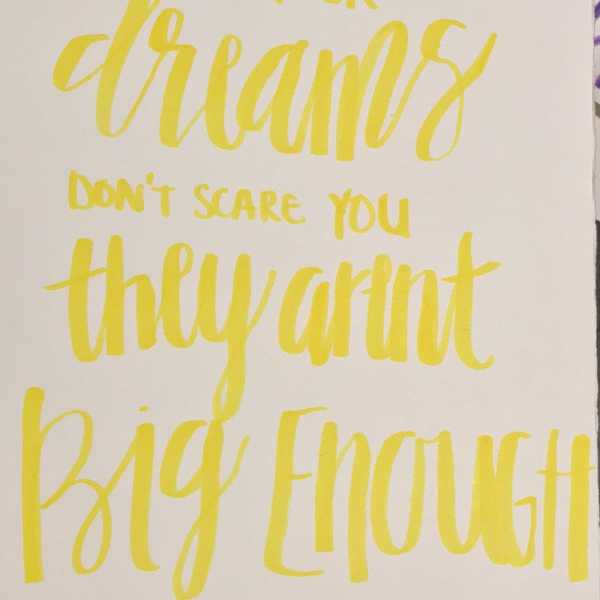 dreams
DON'T SCARE YOU
they arent
Big ENOUGH